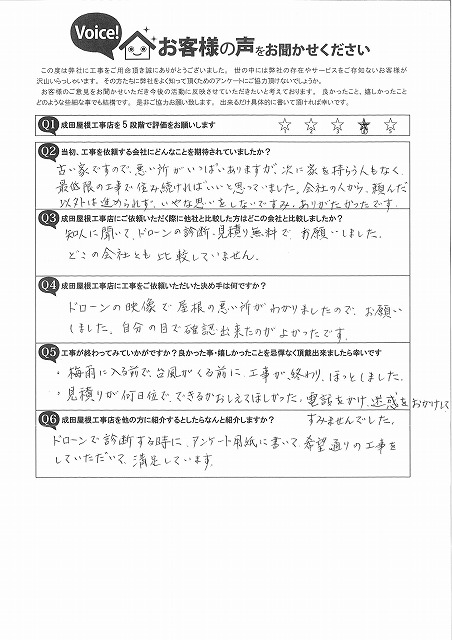 Voice!
お客様の声をお聞かせください
この度は弊社に工事をご用命頂き誠にありがとうございました。 世の中には弊社の存在やサービスをご存知ないお客様が
沢山いらっしゃいます。 その方たちに弊社をよく知って頂くためのアンケートにご協力頂けないでしょうか。
お客様のご意見をお聞かせいただき今後の活動に反映させていただきたいと考えております。 良かったこと、嬉しかったこと
どのような些細な事でも結構です。 是非ご協力お願い致します。 出来るだけ具体的に書いて頂ければ幸いです。
Q1 成田屋根工事店を5段階で評価をお願いします ☆ ☆ ☆ ★ ☆
Q2 当初、工事を依頼する会社にどんなことを期待されていましたか?
古い家ですので、悪い所がいっぱいありますが、次に家を持らう人もなく、
最低限の工事で住み続ければいいと思っていました。会社の人から、頼んだ
以外は進められず、いやな思いをしないですみ、ありがたかったです。
Q3 成田屋根工事店にご依頼いただく際に他社と比較した方はどこの会社と比較しましたか?
知人に聞いて、ドローンの診断、見積り無料で お願いしました。
どこの会社とも比較していません。
Q4 成田屋根工事店に工事をご依頼いただいた決め手は何ですか?
ドローンの映像で屋根の悪い所がわかりましたので、お願い
しました。自分の目で確認出来たのがよかったです。
Q5 工事が終わってみていかがですか?良かった事・嬉しかったことを忌憚なく頂戴出来ましたら幸いです
・梅雨に入る前で、台風がくる前に、工事が終わり、ほっとしました。
・見積りが何日位で、できるかおしえてほしかった。電話をかけ、迷惑をおかけして
すみませんでした。
Q6 成田屋根工事店を他の方に紹介するとしたらなんと紹介しますか?
ドローンで診断する時に、アンケート用紙に書いて、希望通りの工事を
していただいて、満足しています。